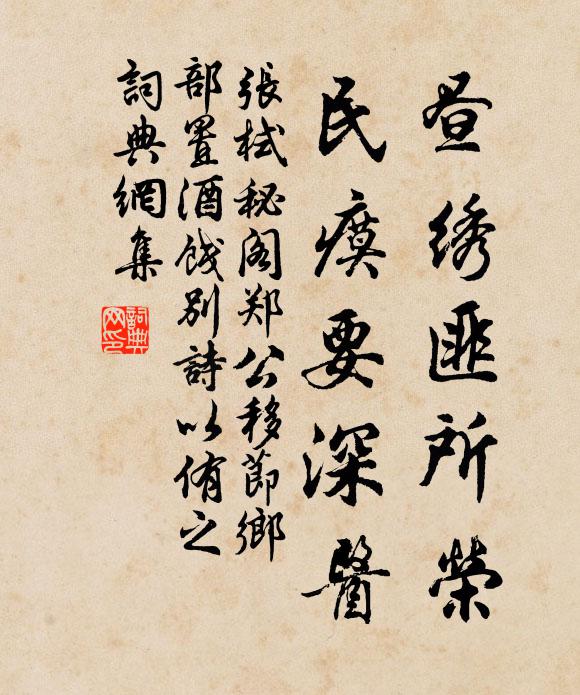 昼綉匪所榮
民瘼要深醫
張栻秘阁郑公移節鄉
部置酒餞别詩以侑之
詞典網集
詞典网印